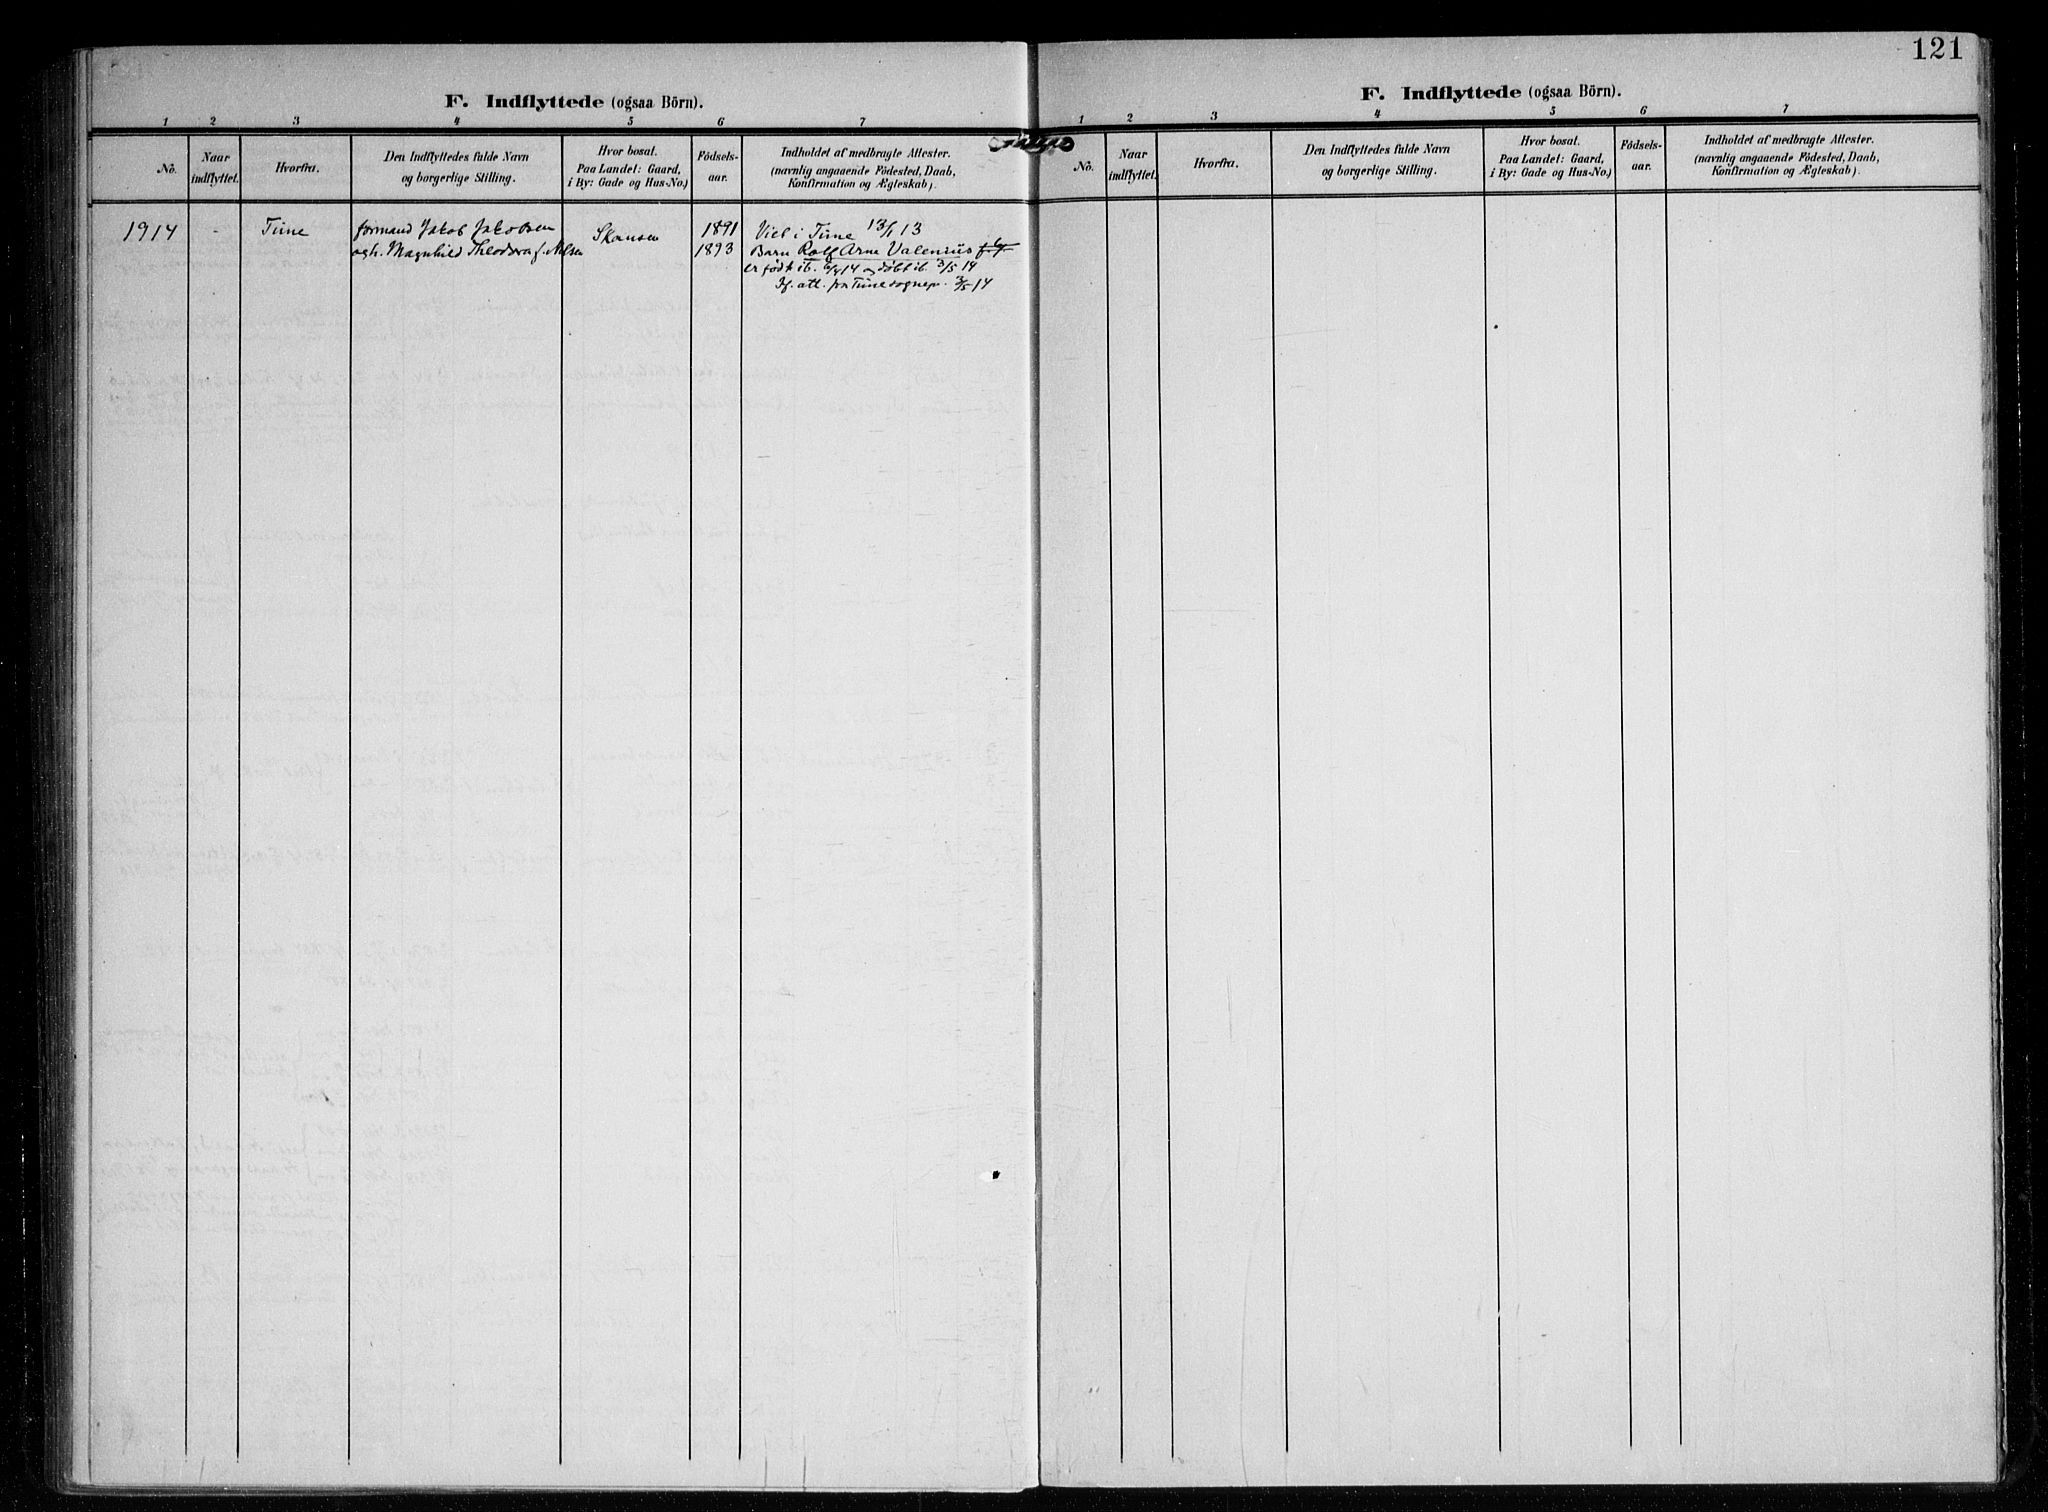 121
F. Indflyttede (ogsaa Börn).
1 2 3 4 5 6 7
No.
Naar indflyttet.
Hvorfra.
Den Indflyttedes fulde Navn
og borgerlige Stilling.
Hvor bosat.
Paa Landet: Gaard,
i By: Gade og Hus-No.)
Födsels-
aar.
Indholdet af medbragte Attester.
(navnlig angaaende Födested, Daab,
Konfirmation og Ægteskab).
1914 - Tune formand Jakob Jakobsen Skansen 1891 Viet i Tune 13/1 13
og h. Magnhild Theodora f. Nilsen 1893 Barn Rolf Arne Valenius
er født ib. 6/4 14 og døbt ib. 3/5 14
If. att. fra Tune sognepr. 3/5 14
F. Indflyttede (ogsaa Börn).
1 2 3 4 5 6 7
No.
Naar
indflyttet.
Hvorfra.
Den Indflyttedes fulde Navn
og borgerlige Stilling.
Hvor bosat.
Paa Landet: Gaard,
i By: Gade og Hus-No.)
Födsels-
aar.
Indholdet af medbragte Attester.
(navnlig angaaende Födested, Daab,
Konfirmation og Ægteskab).